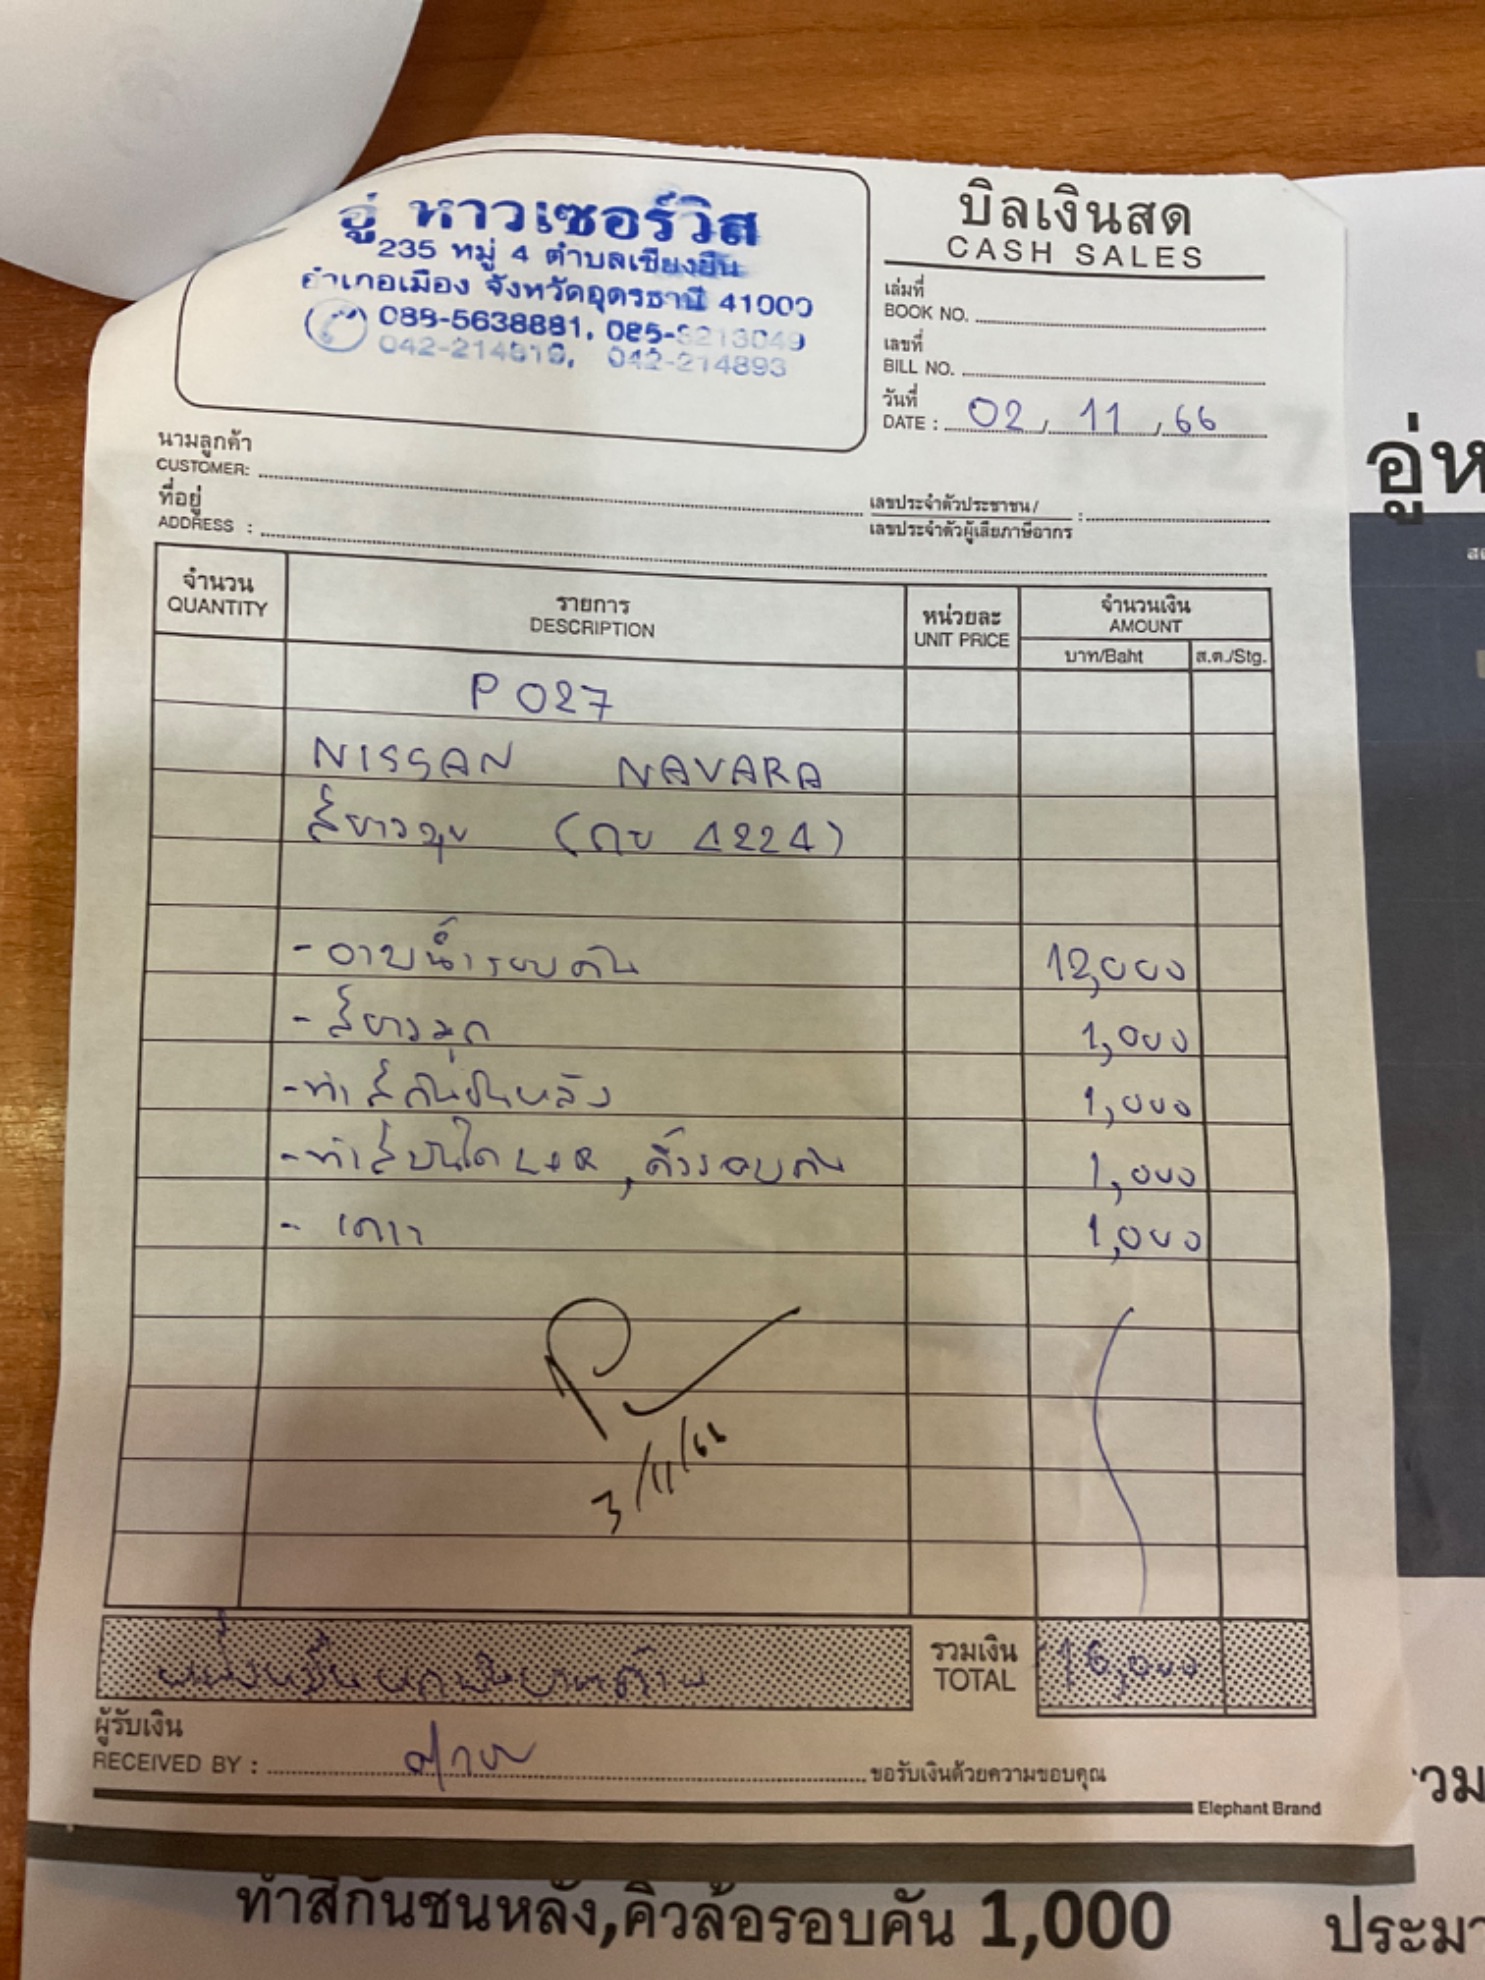 อู่ หาวเซอร์วิส
235 หมู่ 4 ตำบลเชียงยืน
อำเภอเมือง จังหวัดอุดรธานี 41000
088-5638881, 085-8213049
042-214819, 042-214893
บิลเงินสด
CASH SALES
เล่มที่
BOOK NO.
เลขที่
BILL NO.
วันที่
DATE : 02 / 11 / 66
นามลูกค้า
CUSTOMER:
ที่อยู่
ADDRESS :
เลขประจำตัวประชาชน/ :
เลขประจำตัวผู้เสียภาษีอากร
จำนวน
QUANTITY
รายการ
DESCRIPTION
หน่วยละ
UNIT PRICE
จำนวนเงิน
AMOUNT
บาท/Baht
ส.ต./Stg.
P027
NISSAN NAVARA
สีขาวมุก (กบ 4224)
- อาบน้ำรอบคัน 12,000
- สีขาวมุก 1,000
- ทำสีกันชนหลัง 1,000
- ทำสีบันได L+R, คิ้วรอบคัน 1,000
- เคาะ 1,000
3/11/66
หนึ่งหมื่นหกพันบาทถ้วน
รวมเงิน
TOTAL
16,000
ผู้รับเงิน
RECEIVED BY :
ขอรับเงินด้วยความขอบคุณ
Elephant Brand
อู่ห
วม
ทำสีกันชนหลัง,คิวล้อรอบคัน 1,000
ประมา